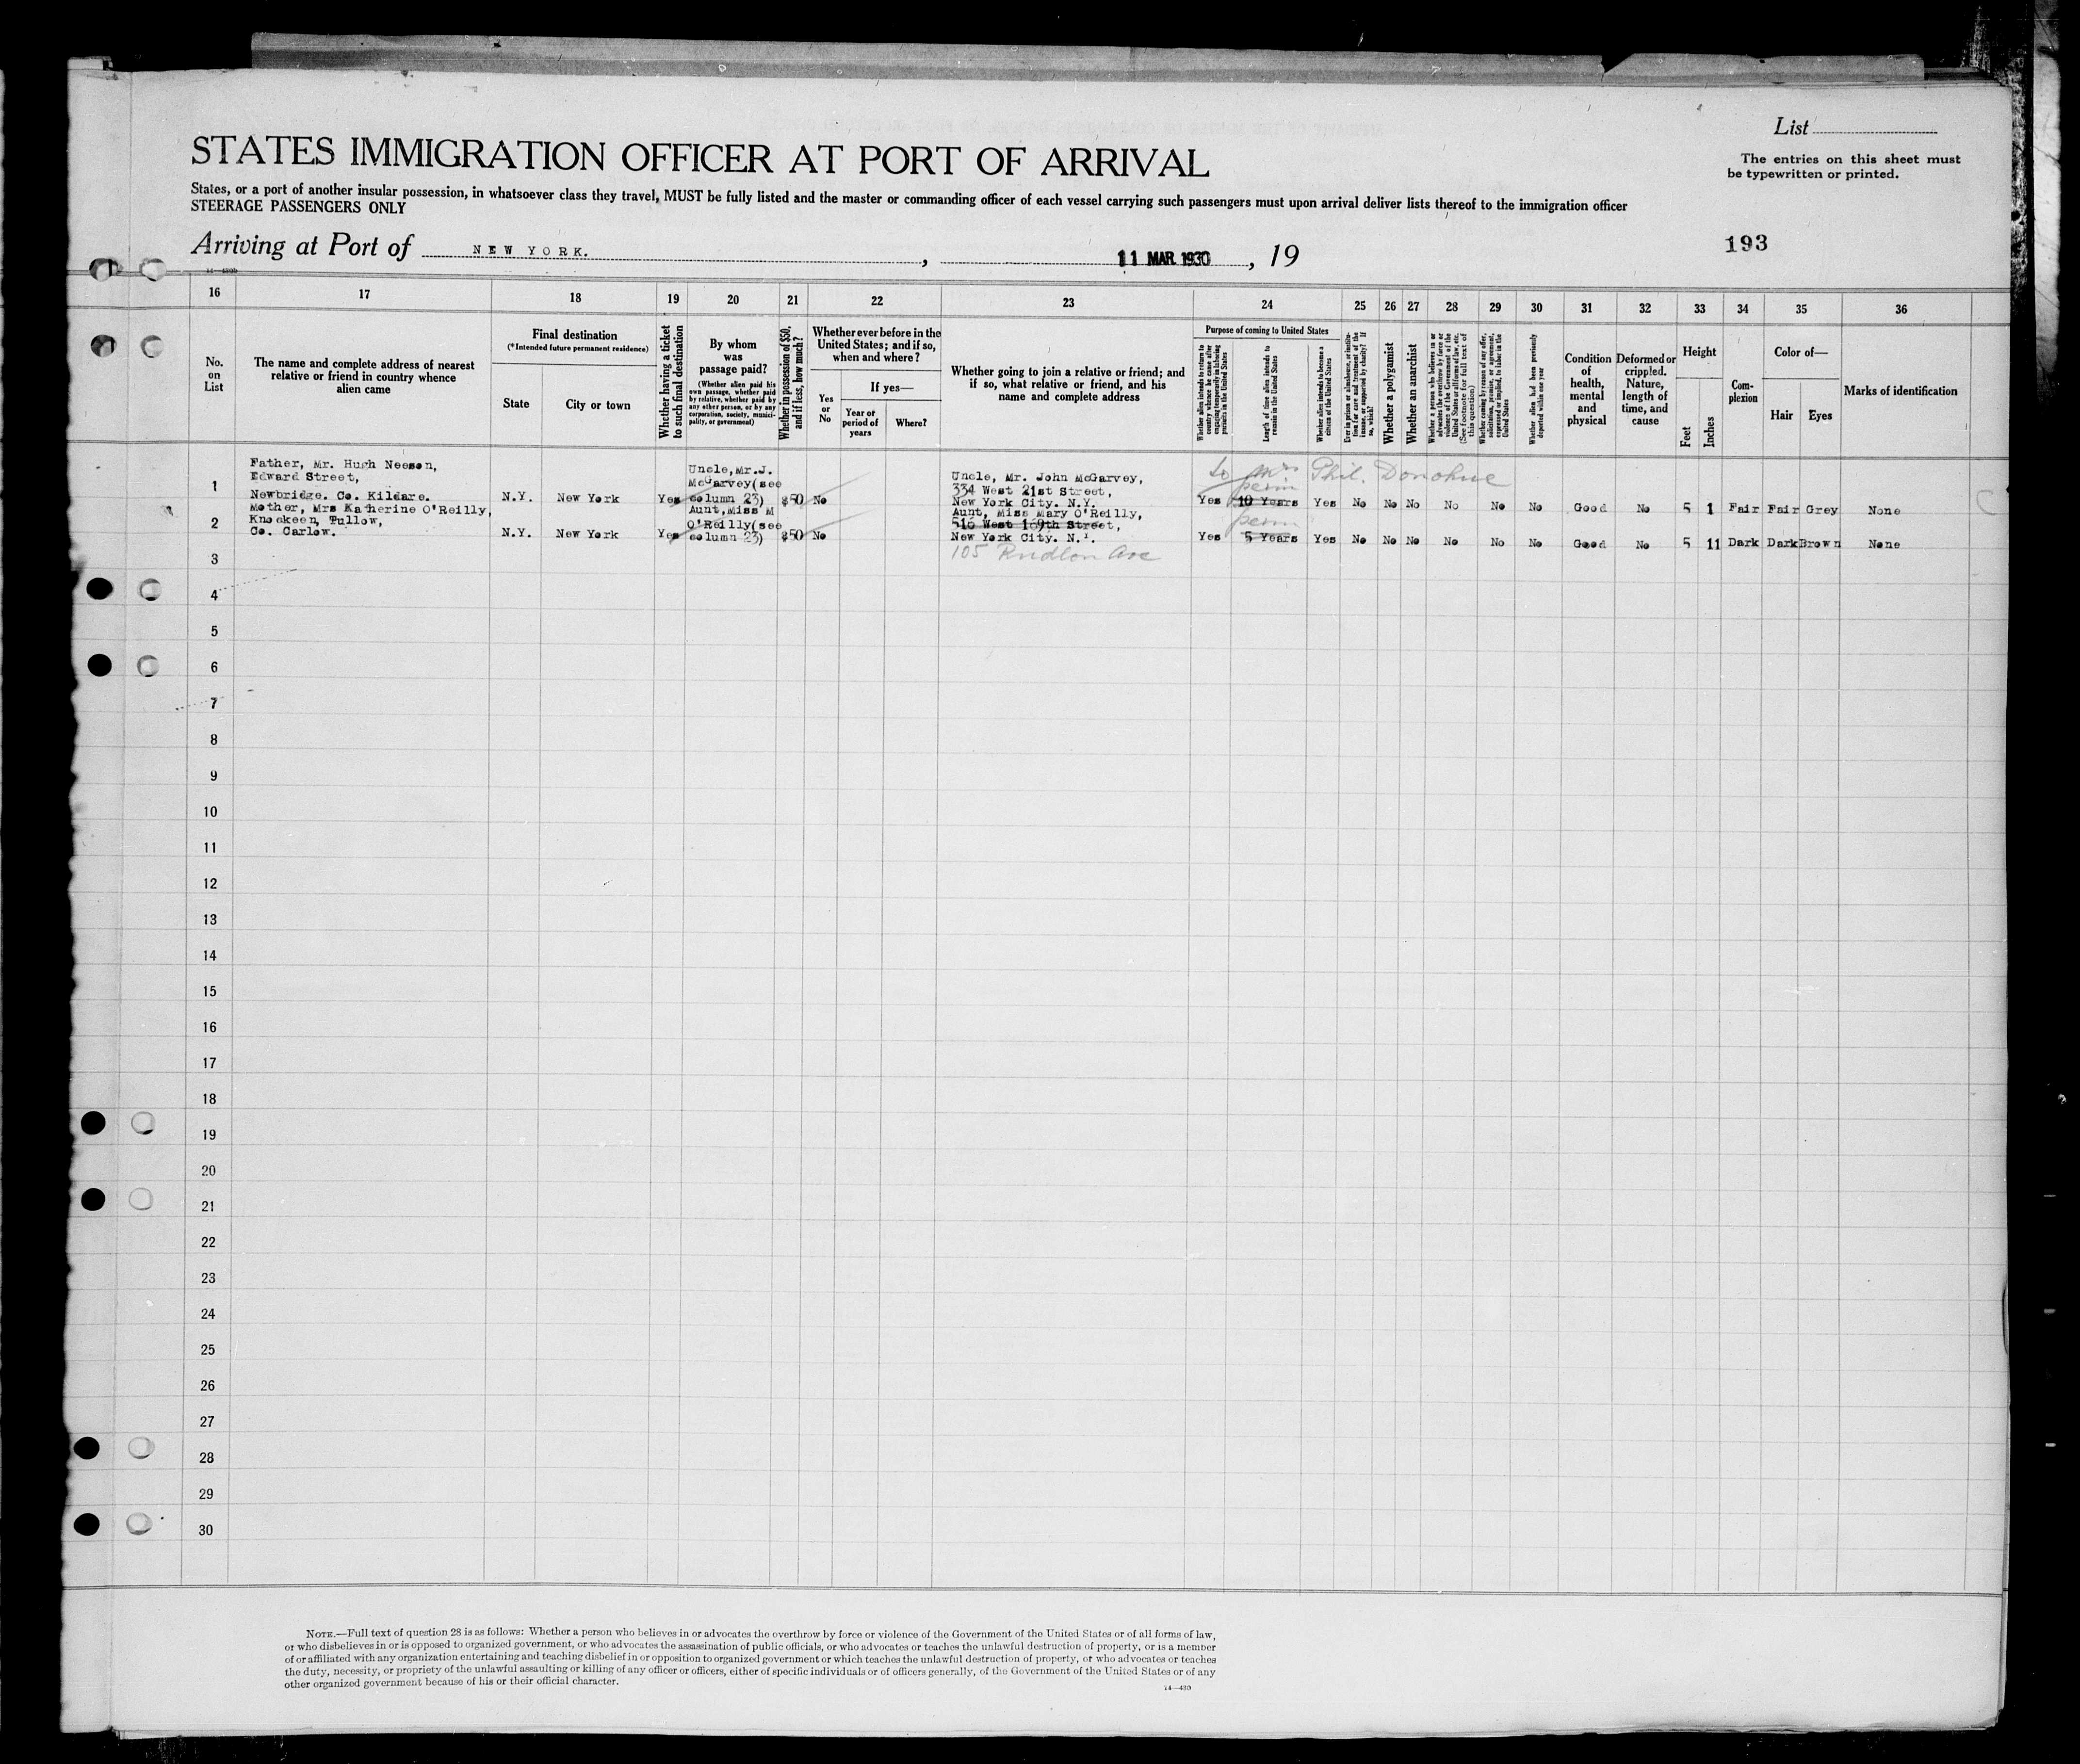 List
The entries on this sheet must
be typewritten or printed.
STATES IMMIGRATION OFFICER AT PORT OF ARRIVAL
States, or a port of another insular possession, in whatsoever class they travel, MUST be fully listed and the master or commanding officer of each vessel carrying such passengers must upon arrival deliver lists thereof to the immigration officer
STEERAGE PASSENGERS ONLY
Arriving at Port of NEW YORK. , 11 MAR 1930 , 19
193
16 17 18 19 20 21 22 23 24 25 26 27 28 29 30 31 32 33 34 35 36
No.
on
List
The name and complete address of nearest
relative or friend in country whence
alien came
Final destination
(*Intended future permanent residence)
State
City or town
Whether having a ticket
to such final destination
By whom
was
passage paid?
(Whether alien paid his
own passage, whether paid
by relative, whether paid by
any other person, or by any
corporation, society, munici-
pality, or government)
Whether in possession of $50,
and if less, how much?
Whether ever before in the
United States; and if so,
when and where?
Yes
or
No
If yes—
Year or
period of
years
Where?
Whether going to join a relative or friend; and
if so, what relative or friend, and his
name and complete address
Purpose of coming to United States
Whether alien intends to return to
country whence he came after
engaging temporarily in laboring
pursuits in the United States
Length of time alien intends to
remain in the United States
Whether alien intends to become a
citizen of the United States
Ever in prison or almshouse, or institu-
tion for care and treatment of the
insane, or supported by charity? If
so, which?
Whether a polygamist
Whether an anarchist
Whether a person who believes in or
advocates the overthrow by force or
violence of the Government of the
United States or all forms of law, etc.
(See footnote for full text of
this question)
Whether coming by reason of any offer,
solicitation, promise, or agreement,
expressed or implied, to labor in the
United States
Whether alien had been previously
deported within one year
Condition
of
health,
mental
and
physical
Deformed or
crippled.
Nature,
length of
time, and
cause
Height
Feet
Inches
Com-
plexion
Color of—
Hair
Eyes
Marks of identification
1
Father, Mr. Hugh Neeson,
Edward Street,
Newbridge. Co. Kildare.
N.Y. New York Yes
Uncle,Mr.J.
McGarvey(see
column 23)
$50 No
Uncle, Mr. John McGarvey,
334 West 21st Street,
New York City. N.Y.
to Mrs Phil. Donohue
perm
Yes 10 Years Yes No No No No No No Good No 5 1 Fair Fair Grey None
2
Mother, Mrs Katherine O'Reilly,
Knockeen, Tullow,
Co. Carlow.
N.Y. New York Yes
Aunt,Miss M
O'Reilly(see
column 23)
$50 No
Aunt, Miss Mary O'Reilly,
516 West 169th Street,
New York City. N.Y.
105 Ave
perm
Yes 5 Years Yes No No No No No No Good No 5 11 Dark Dark Brown None
3
4
5
6
7
8
9
10
11
12
13
14
15
16
17
18
19
20
21
22
23
24
25
26
27
28
29
30
NOTE.—Full text of question 28 is as follows: Whether a person who believes in or advocates the overthrow by force or violence of the Government of the United States or of all forms of law,
or who disbelieves in or is opposed to organized government, or who advocates the assassination of public officials, or who advocates or teaches the unlawful destruction of property, or is a member
of or affiliated with any organization entertaining and teaching disbelief in or opposition to organized government or which teaches the unlawful destruction of property, or who advocates or teaches
the duty, necessity, or propriety of the unlawful assaulting or killing of any officer or officers, either of specific individuals or of officers generally, of the Government of the United States or of any
other organized government because of his or their official character.
14—430